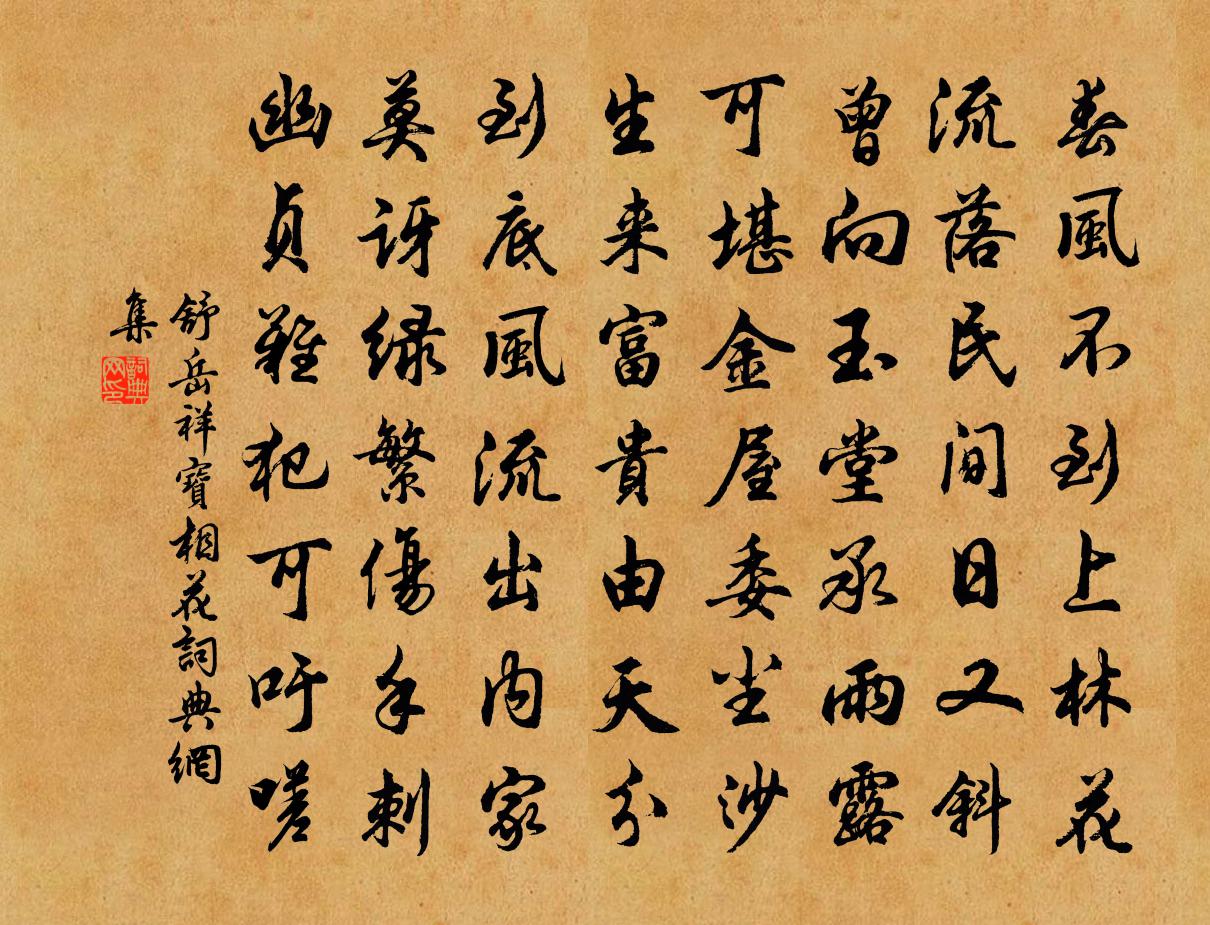 春風不到上林花
流落民間日又斜
曾向玉堂承雨露
可堪金屋委塵沙
生来富貴由天分
到底風流出内家
莫訝绿繁傷手刺
幽貞難犯可吁嗟
舒岳祥寶相花詞典網
集
詞典
网印